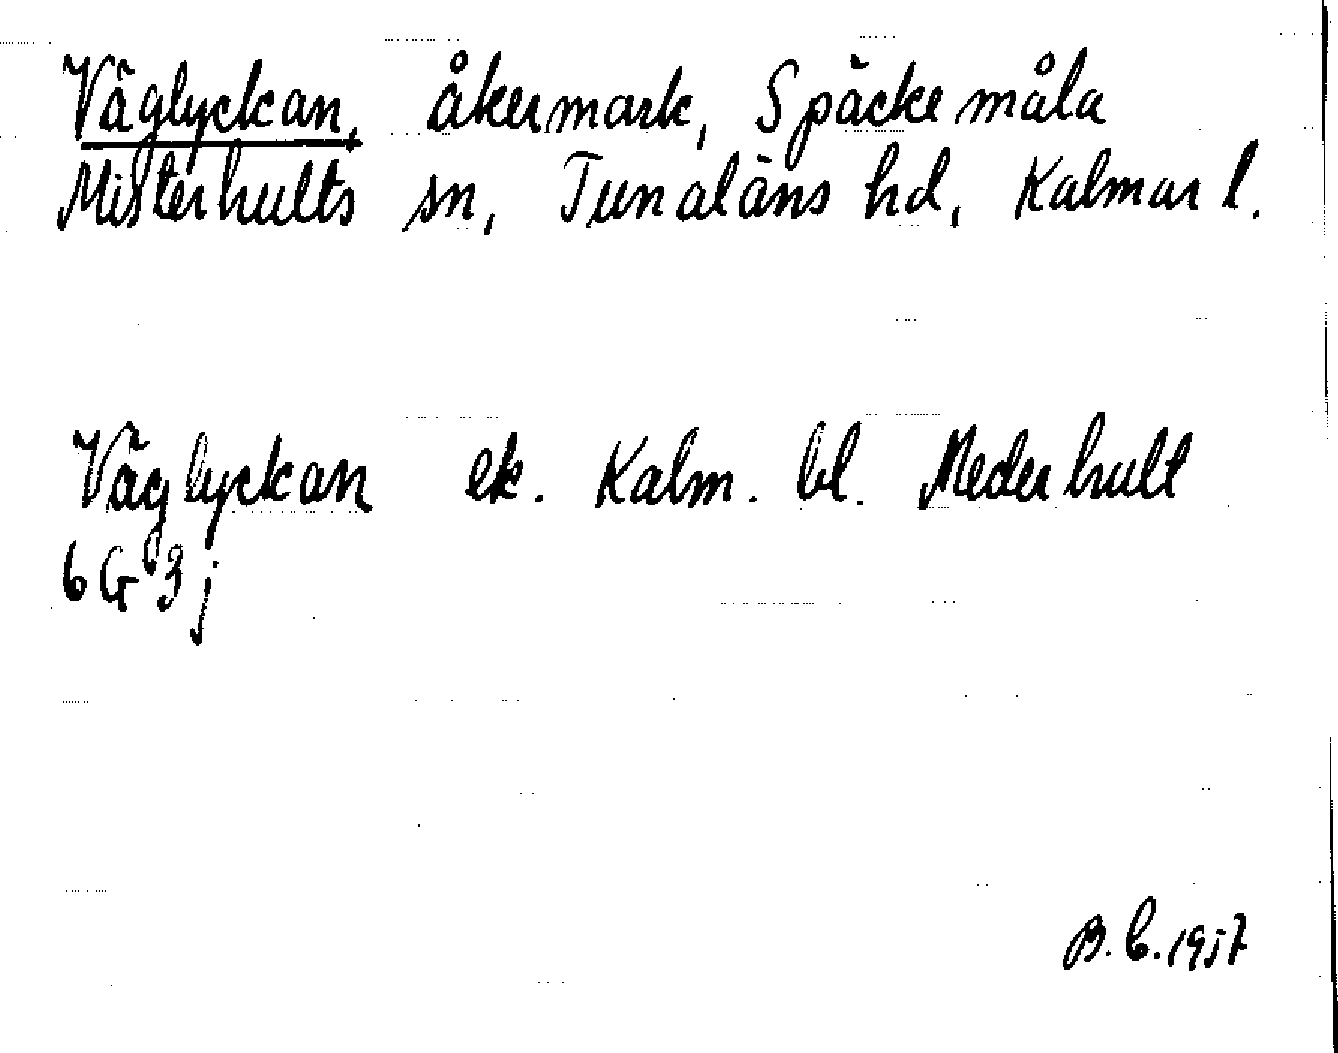 Väglyckan, åkermark, Späckemåla
Misterhults sn, Tunaläns hd, Kalmar l.
Väglyckan ek. Kalm. bl. Mederhult
6G3j
B.C. 1957